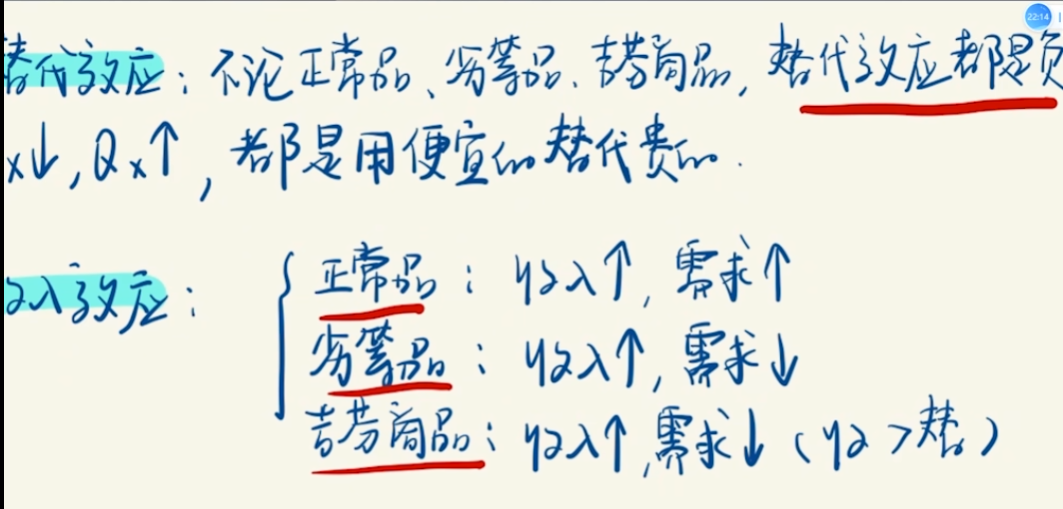 22:14
替代效应：不论正常品、劣等品、吉芬商品，替代效应都是负
x↓，Qx↑，都是用便宜的替代贵的.
收入效应：
正常品：收入↑，需求↑
劣等品：收入↑，需求↓
吉芬商品：收入↑，需求↓（收＞替）